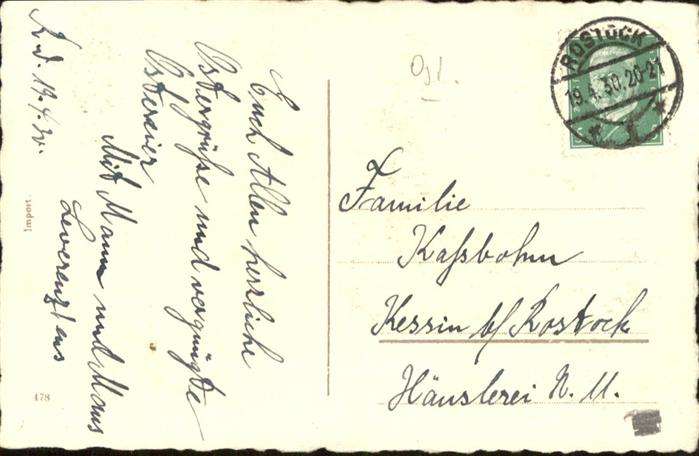 R. d. 19.4.30.
Euch Allen herzliche
Ostergrüße und vergnügte
Ostereier
Mit Mann und Maus
Familie
Kaßbohm
Kessin b/ Rostock
Häuslerei N. 11.
ROSTOCK
19.4.30.20-21
Import.
478